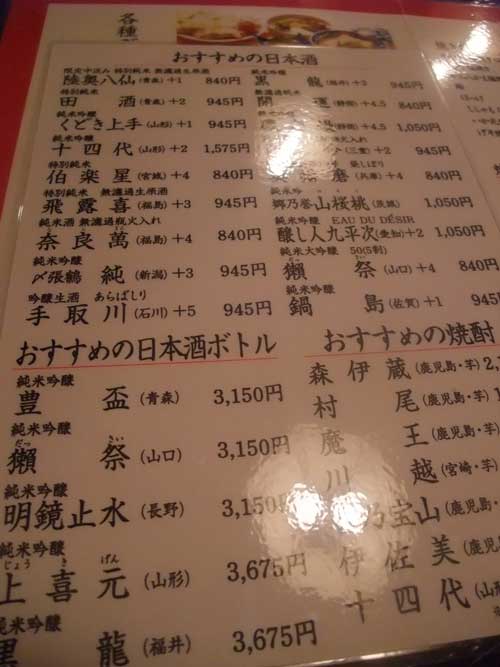 各種
おすすめの日本酒
限定中汲み 特別純米 無濾過生原酒
陸奥八仙(青森)+1 840円
特別純米
田酒(青森)+2 945円
純米吟醸
くどき上手(山形)+1 945円
純米吟醸
十四代(山形)+2 1,575円
特別純米
伯楽星(宮城)+4 840円
特別純米 無濾過生原酒
飛露喜(福島)+3 945円
純米酒 無濾過瓶火入れ
奈良萬(福島)+4 840円
純米吟醸
〆張鶴 純(新潟)+3 945円
吟醸生酒 あらばしり
手取川(石川)+5 945円
純米吟醸
黒龍(福井)+2 945円
無濾過純米
開運(静岡)+4.5 840円
(静岡)+4.5 1,050円
火入れ
(三重)+2 945円
磨(兵庫)+4 945円
純米吟
郷乃誉山桜桃(茨城) 1,050円
純米吟醸 EAU DU DÉSIR
醸し人九平次(愛知)+2 1,050円
純米大吟醸 50(5割)
獺祭(山口)+4 840円
純米吟醸
鍋島(佐賀)+1 945円
おすすめの日本酒ボトル
純米吟醸
豊盃(青森) 3,150円
純米吟醸
だっ さい
獺祭(山口) 3,150円
純米吟醸
明鏡止水(長野) 3,150円
純米吟醸
じょう き げん
上喜元(山形) 3,675円
純米吟醸
黒龍(福井) 3,675円
おすすめの焼酎
森伊蔵(鹿児島・芋)2,
村尾(鹿児島・芋)1
魔王(鹿児島・芋)
川越(宮崎・芋)
乃宝山(鹿児島
伊佐美(鹿児島
十四代(山形